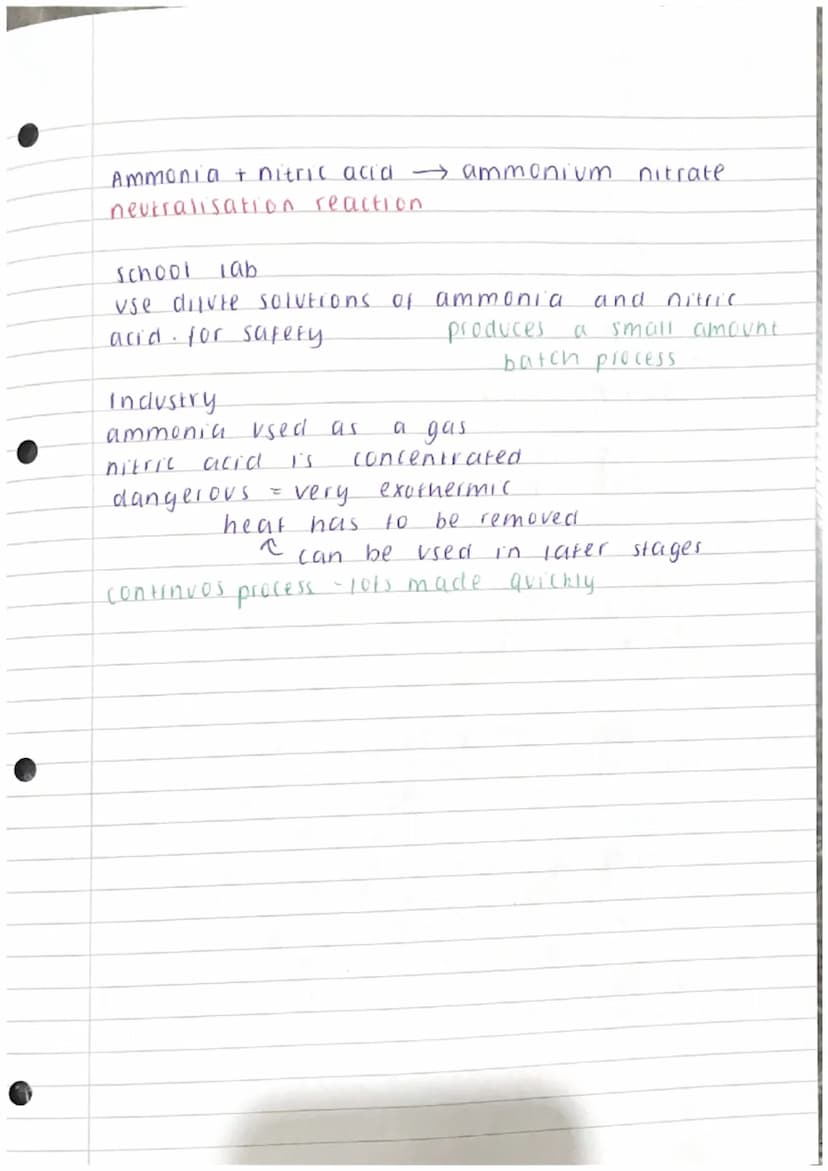 Ammonia + nitric acid → ammonium nitrate
neutralisation reaction
school lab
use dilute solutions of ammonia and nitric
acid. for safety produces a small amount
batch process
Industry
ammonia used as a gas
nitric acid is concentrated
dangerous = very exothermic
heat has to be removed
↑ can be used in later stages
continuos process - lots made quickly